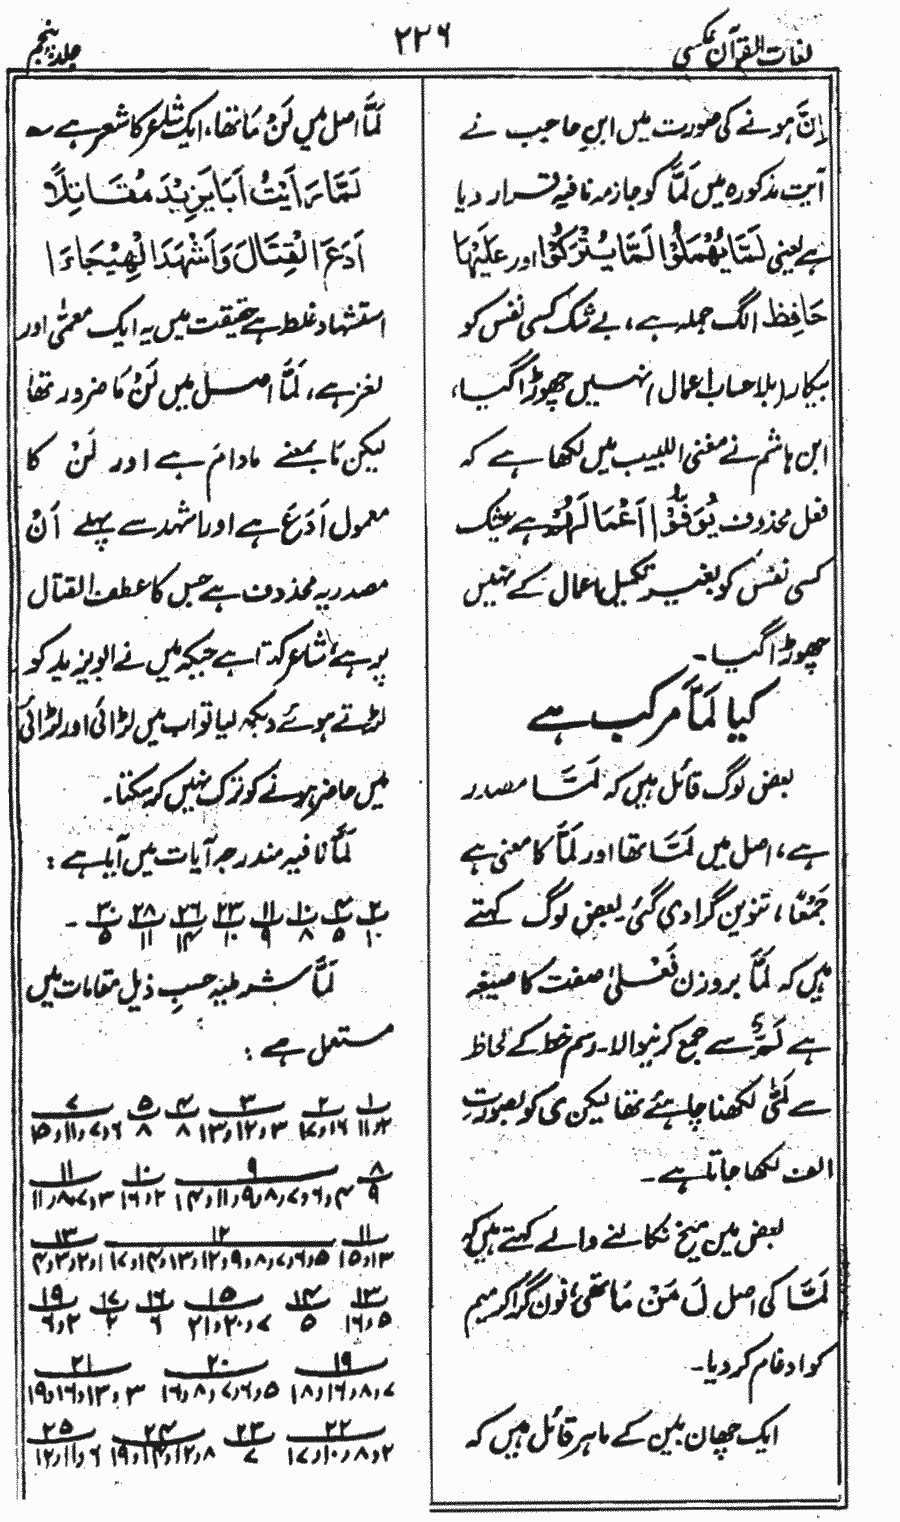 لغات القرآن عکسی
۲۲۶
جلد پنجم
اِنَّ ہونے کی صورت میں ابن حاجب نے
آیت مذکورہ میں لَمَّا کو جازمہ نافیہ قرار دیا
ہے یعنی لَمَّا یُهْمَلُوْا لَمَّا یُتْرَكُوْا اور عَلَیْهَا
حَافِظٌ الگ جملہ ہے، بے شک کسی نفس کو
بیکار (بلا حساب اعمال) نہیں چھوڑا گیا،
ابن ہاشم نے مغنی اللبیب میں لکھا ہے کہ
فعل محذوف یُوَفَّوْا اَعْمَالَهُمْ ہے بیشک
کسی نفس کو بغیر تکمیل اعمال کے نہیں
چھوڑا گیا۔
کیا لَمَّا مرکب ہے
بعض لوگ قائل ہیں کہ لَمَّا مصدر
ہے، اصل میں لَمًّا تھا اور لَمًّا کا معنی ہے
جَمْعًا، تنوین گرا دی گئی۔ بعض لوگ کہتے
ہیں کہ لَمَّا بروزن فَعْلیٰ صفت کا صیغہ
ہے لَمٌّ سے جمع کرنیوالا۔ رسم خط کے لحاظ
سے لَمّٰی لکھنا چاہئے تھا لیکن ی کو بصورت
الف لکھا جاتا ہے۔
بعض میں میخ نکالنے والے کہتے ہیں کہ
لَمَّا کی اصل لَ مَنْ مَا تھی نون گرا کر میم
کو ادغام کر دیا۔
ایک چھان بین کے ماہر قائل ہیں کہ
لَمَّا اصل میں لَنْ مَا تھا، ایک شاعر کا شعر ہے ؎
لَمَّا رَاَیْتُ اَبَا یَزِیْدَ مُقَاتِلًا
اَدَعَ الْقِتَالَ وَاَشْهَدَ الْهَیْجَاءَا
استشہاد غلط ہے حقیقت میں یہ ایک معمّٰی اور
لغز ہے، لَمَّا اصل میں لَنْ مَا ضرور تھا
لیکن مَا بمعنے مادام ہے اور لَنْ کا
معمول اَدَعَ ہے اور اشہد سے پہلے اَنْ
مصدریہ محذوف ہے جس کا عطف القتال
پر ہے، شاعر کہتا ہے جبکہ میں نے ابو یزید کو
لڑتے ہوئے دیکھ لیا تو اب میں لڑائی اور لڑائی
میں حاضر ہونے کو ترک نہیں کر سکتا۔
لَمَّا نافیہ مندرجہ آیات میں آیا ہے :
۲/۱۰ ۴/۵ ۱۰/۸ ۱۱/۹ ۲۳/۱۰ ۲۶/۱۴ ۲۸/۱۱ ۳۰/۵ ۔
لَمَّا شرطیہ حسبِ ذیل مقامات میں
مستعمل ہے :
۱/۲و۱۱ ۲/۱۶و۱۷ ۳/۳و۱۲و۱۳ ۴/۸ ۵/۸ ۷/۶و۷و۱۱و۱۵
۸/۹ ۹/۴و۶و۷و۸و۹و۱۱و۱۴ ۱۰/۲و۱۶ ۱۱/۳و۷و۸و۱۱
۱۱/۱۳و۱۵ ۱۲/۵و۶و۷و۸و۹و۱۲و۱۳و۱۴و۱۷ ۱۳/۱و۲و۳و۴
۱۳/۵و۱۶ ۱۴/۵ ۱۵/۷و۲۰و۲۱ ۱۶/۶ ۱۷/۲ ۱۹/۲و۶
۱۹/۷و۸و۱۶و۱۸ ۲۰/۵و۶و۷و۸و۱۶ ۲۱/۳و۱۳و۱۶و۱۹
۲۲/۲و۸و۱۰و۱۷ ۲۳/۷ ۲۴/۸و۱۲و۱۴و۱۹ ۲۵/۶و۱۱و۱۲